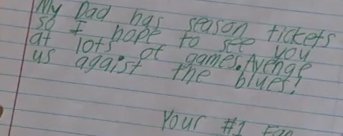 My Dad has season tickets
so I hope to see you
at lots of games. Avenge
us agaist the blues!
Your #1 Fan